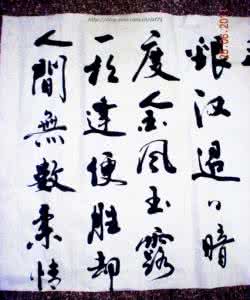 銀汉迢々暗
度金风玉露
一相逢便胜却
人間無數柔情